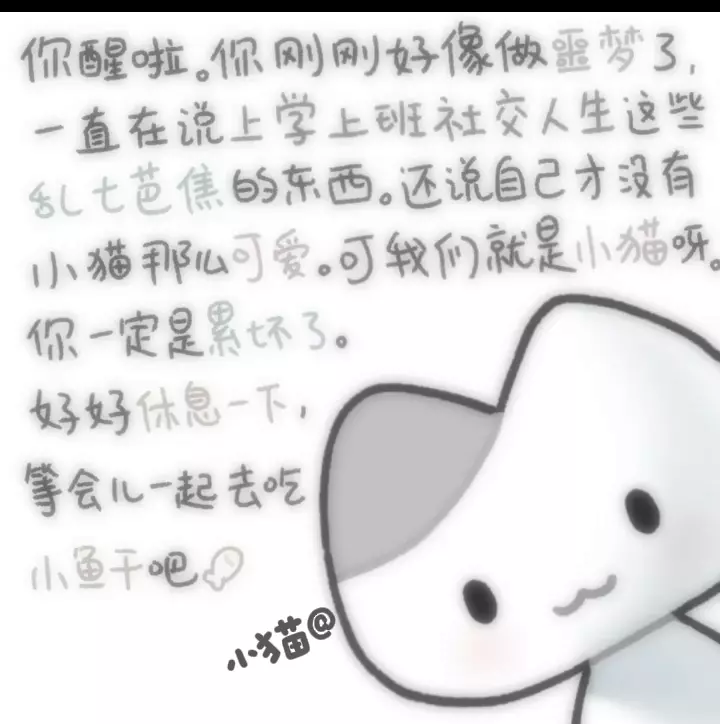 你醒啦。你刚刚好像做噩梦了,
一直在说上学上班社交人生这些
乱七芭焦的东西。还说自己才没有
小猫那么可爱。可我们就是小猫呀。
你一定是累坏了。
好好休息一下,
等会儿一起去吃
小鱼干吧
小猫@